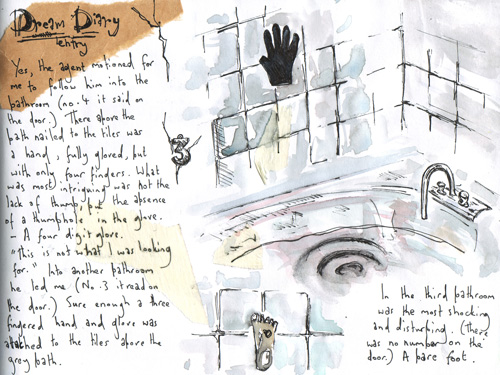 Dream Diary
entry
Yes, the agent motioned for
me to follow him into the
bathroom (no. 4 it said on
the door.) There above the
bath nailed to the tiles was
a hand, fully gloved, but
with only four fingers. What
was most intriguing was not the
lack of thumb, but the absence
of a thumbhole in the glove.
- A four digit glove.
"This is not what I was looking
for." Into another bathroom
he led me (No. 3 it read on
the door.) Sure enough a three
fingered hand and glove was
attached to the tiles above the
grey bath.
3
In the third bathroom
was the most shocking
and disturbing. (There
was no number on the
door.) A bare foot.